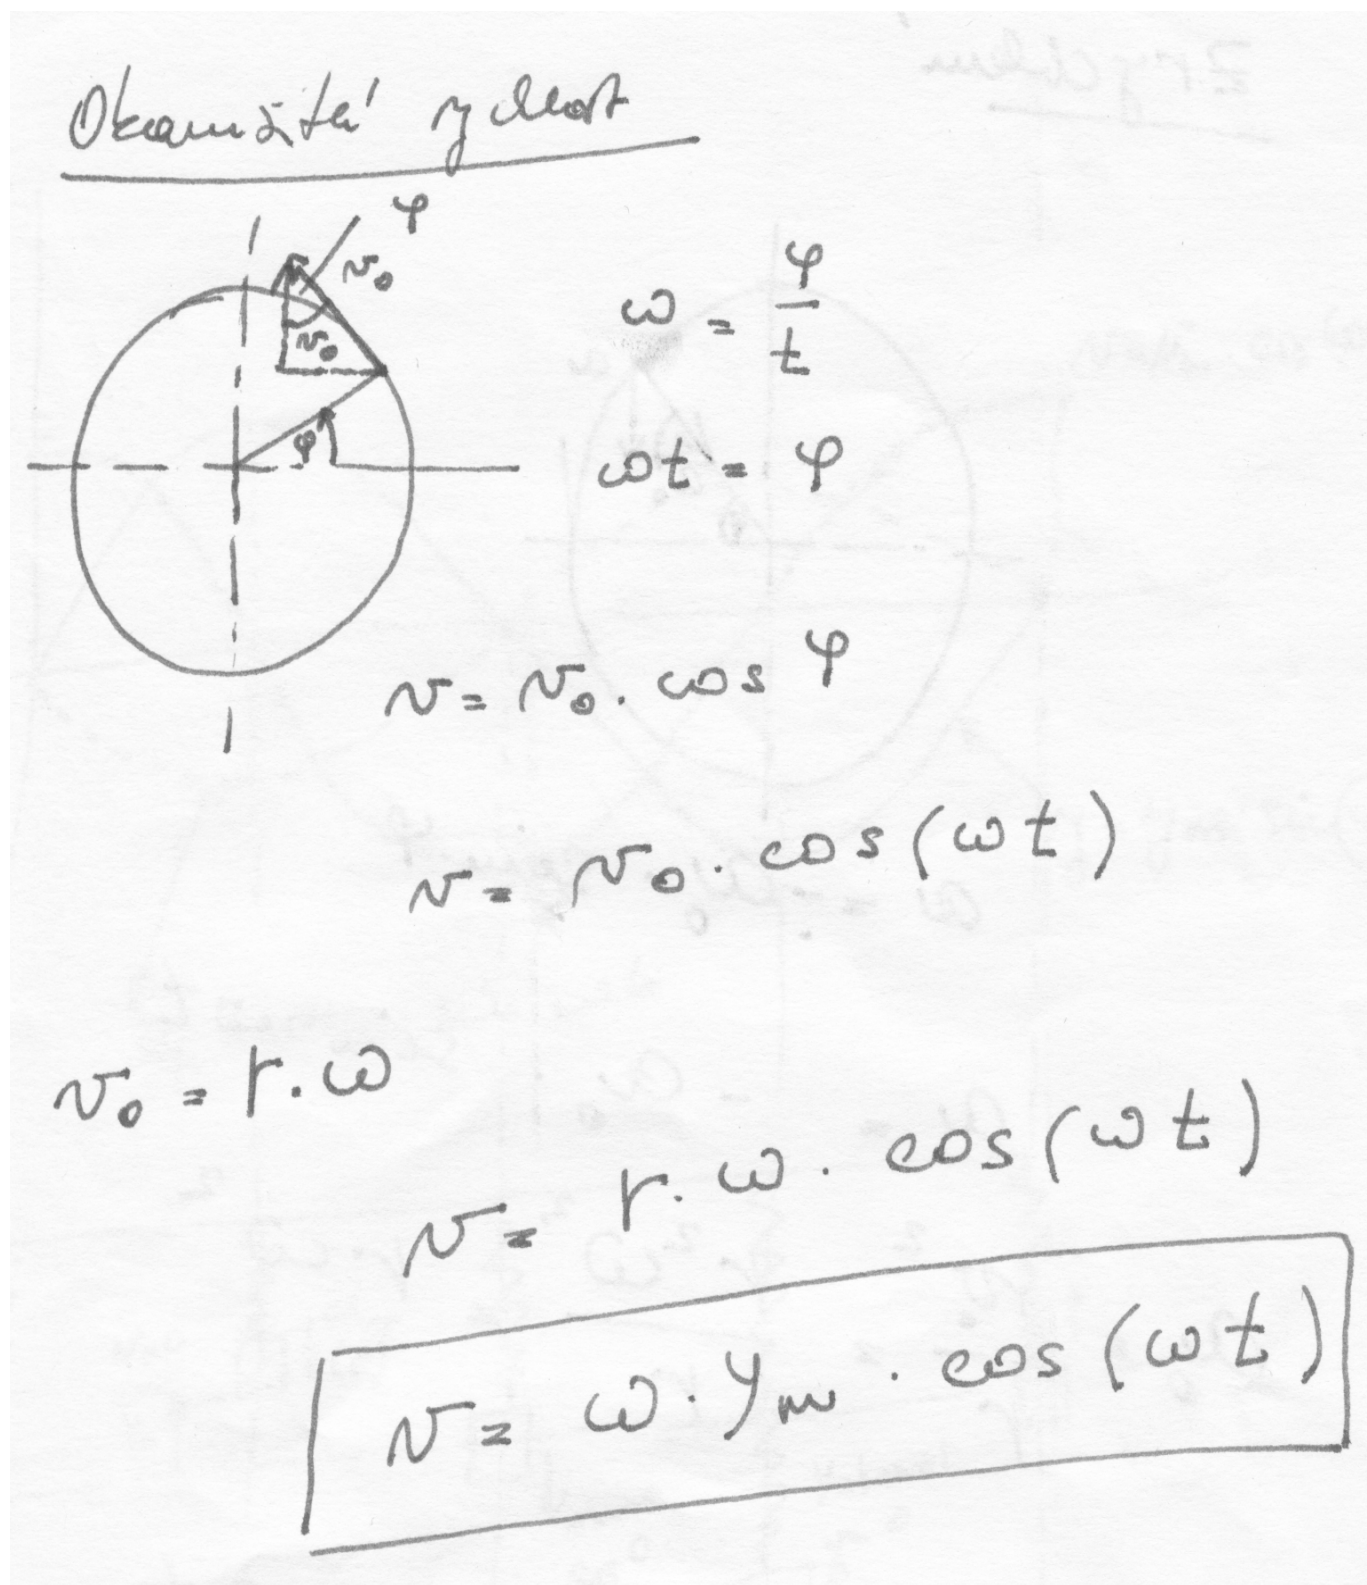 Okamžitá rychlost
φ
v₀
v₀
φ
ω = φ/t
ωt = φ
v = v₀ . cos φ
v = v₀ . cos (ωt)
v₀ = r . ω
v = r . ω . cos (ωt)
v = ω . yₘ . cos (ωt)